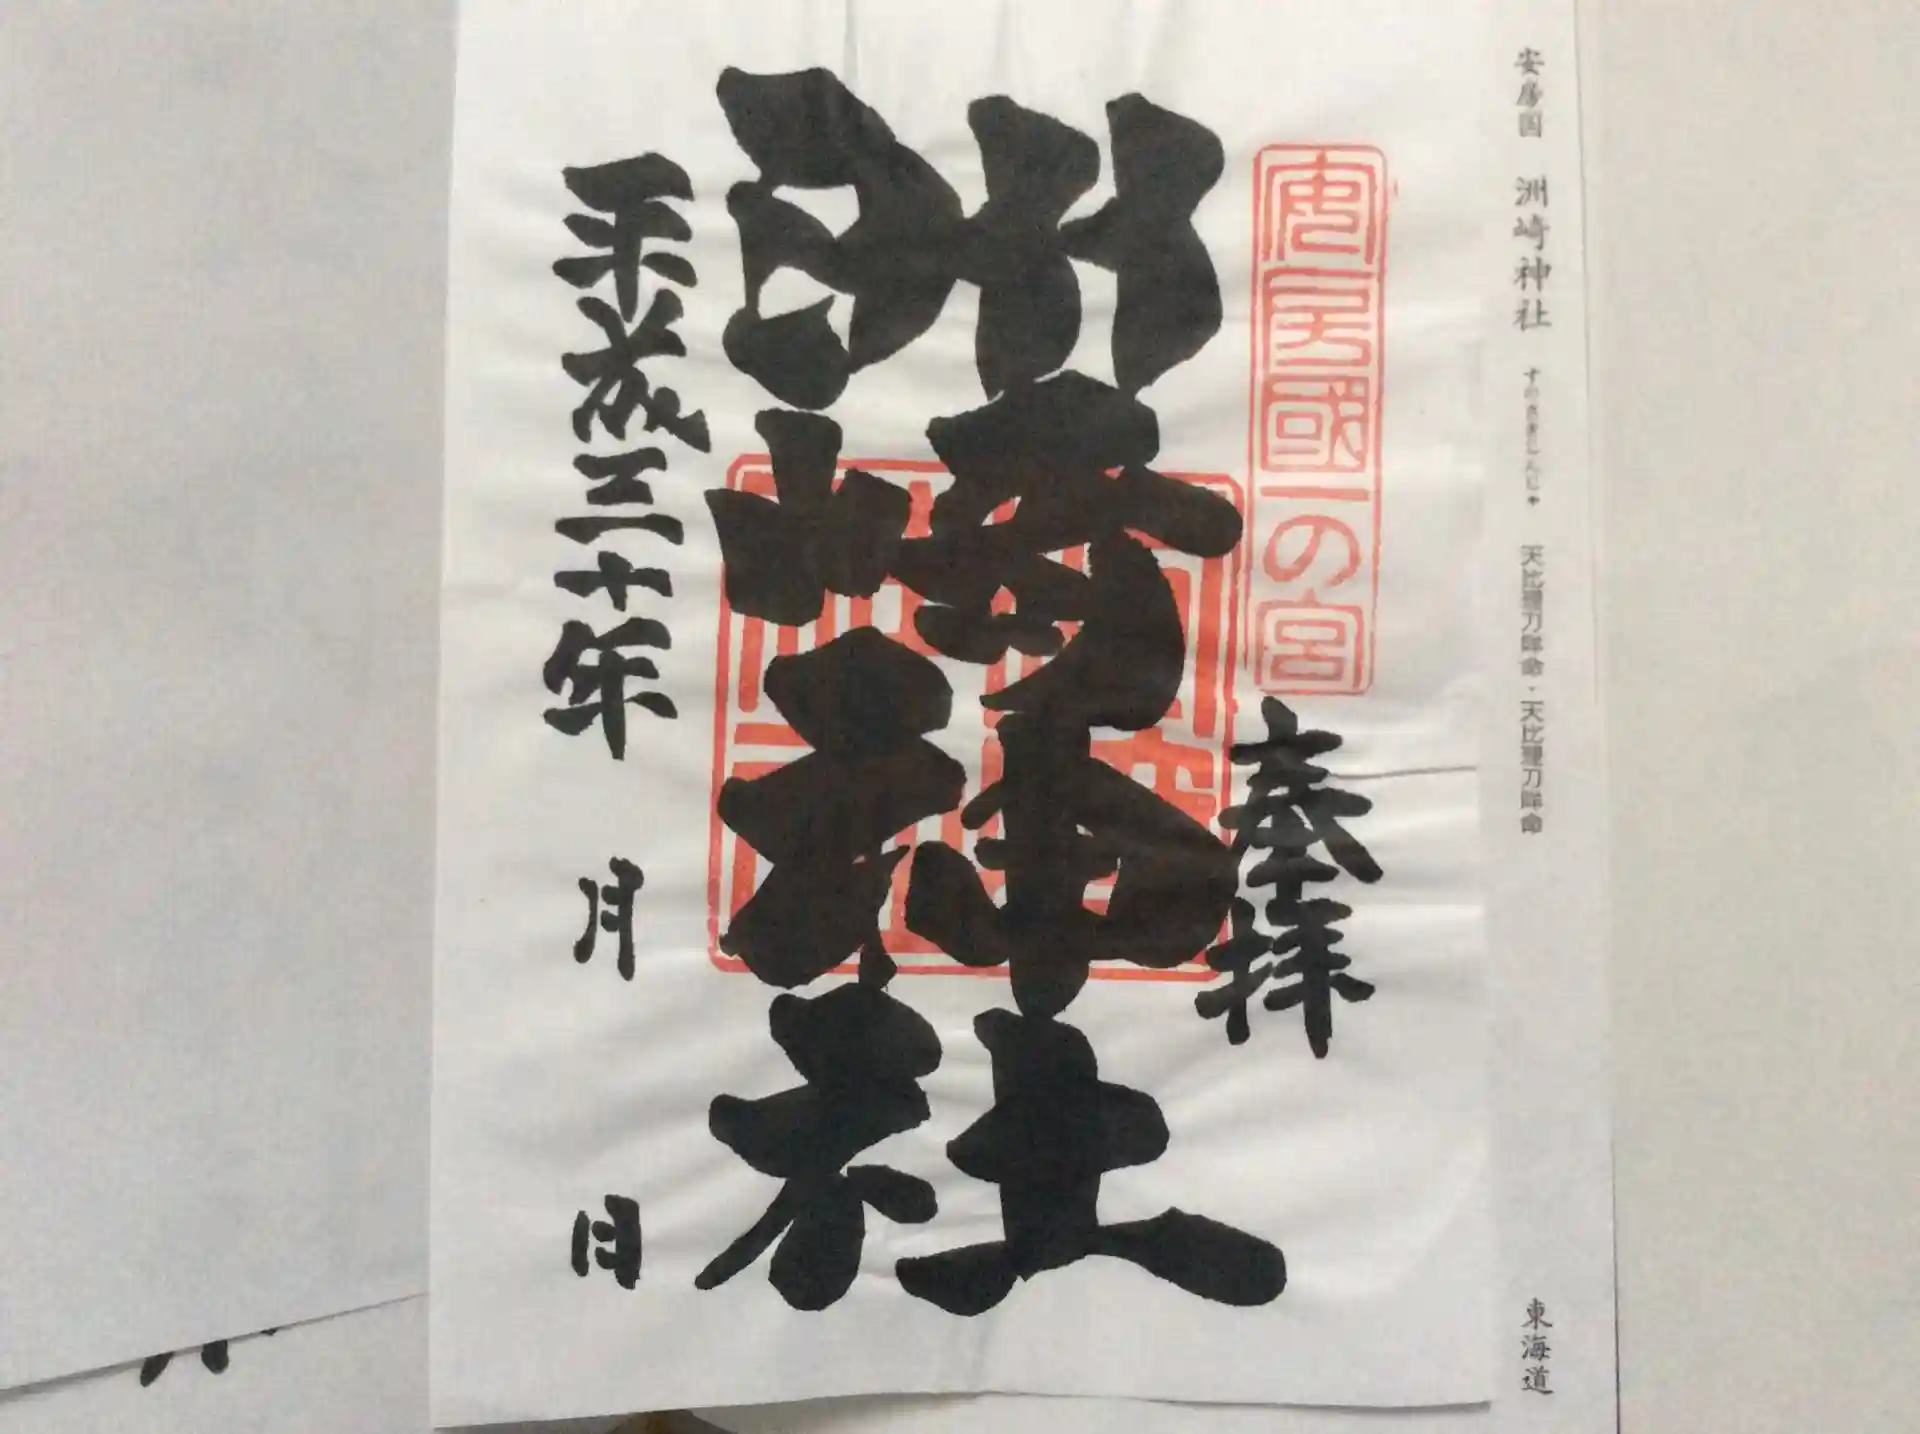 安房国 洲崎神社 すのさきじんじゃ 天比理刀咩命・天比理刀咩命 東海道
安房國一の宮
奉拝
洲崎神社
平成三十年 月 日